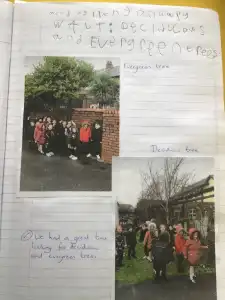 and
WAlt: Deciduous
and Evergreen trees
Evergreen trees
Deciduous tree
We had a good time
looking for Deciduous
and evergreen trees.